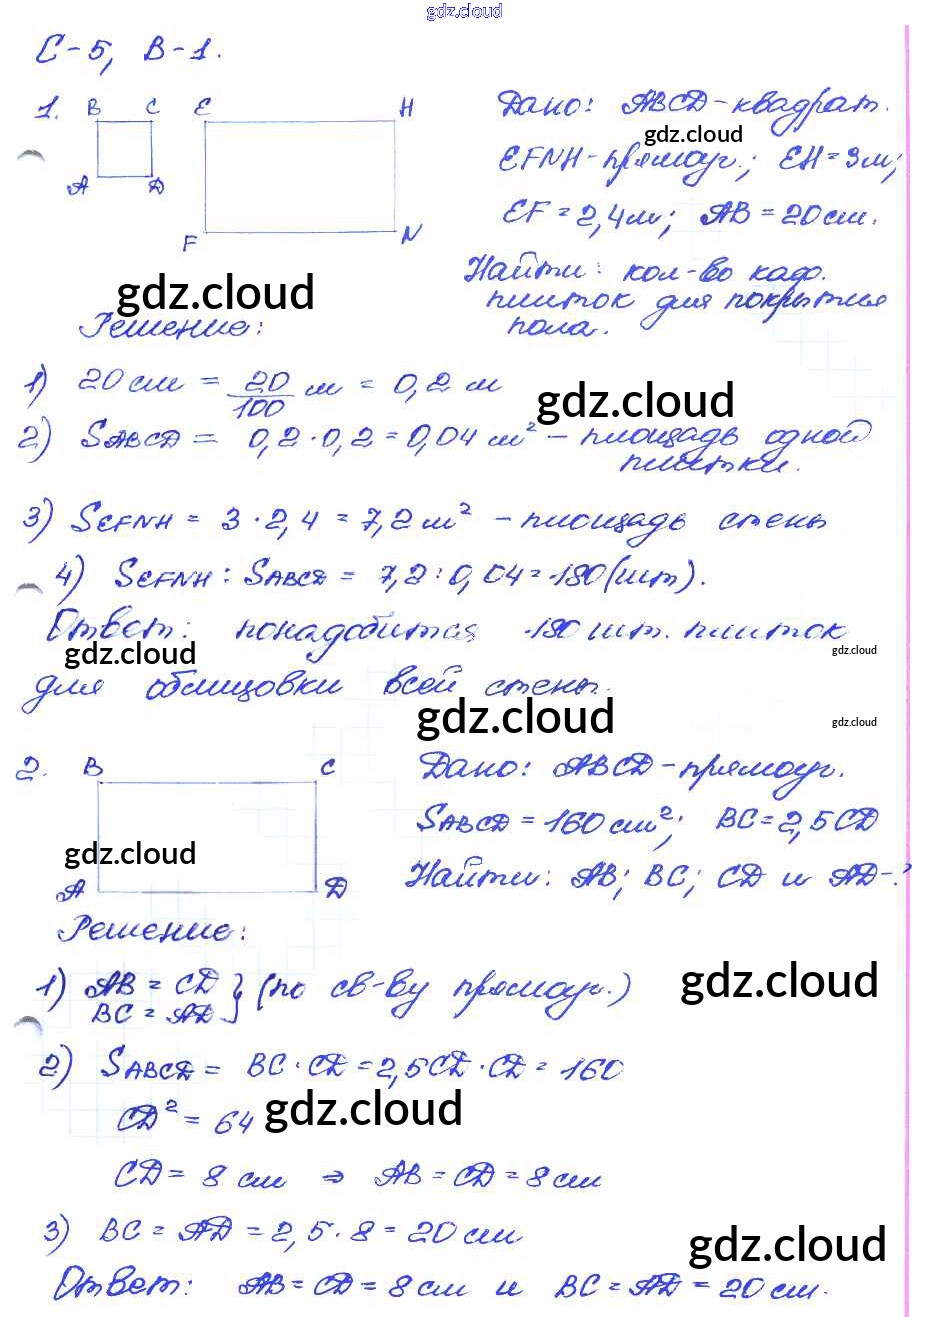 gdz.cloud
С-5, В-1.
1. B C E H
A D
F N
Дано: ABCD-квадрат.
gdz.cloud
EFNH-прямоуг.; EH=3м;
EF=2,4м; AB=20см.
Найти: кол-во каф.
плиток для покрытия
пола.
gdz.cloud
Решение:
1) 20см = 20/100 м = 0,2 м
gdz.cloud
2) SABCD = 0,2·0,2=0,04 м² - площадь одной
плитки.
3) SEFNH = 3·2,4=7,2м² - площадь стены
4) SEFNH : SABCD = 7,2:0,04=180(шт).
Ответ: понадобится 180 шт. плиток
gdz.cloud
gdz.cloud
для облицовки всей стены.
gdz.cloud
gdz.cloud
2. B C
A D
Дано: ABCD-прямоуг.
SABCD=160см²; BC=2,5CD
gdz.cloud
Найти: AB; BC; CD и AD-?
Решение:
1) AB = CD
BC = AD } (по св-ву прямоуг.)
gdz.cloud
2) SABCD = BC·CD=2,5CD·CD=160
CD² = 64
gdz.cloud
CD = 8 см ⇒ AB=CD=8см
3) BC = AD = 2,5·8=20см
gdz.cloud
Ответ: AB=CD=8см и BC=AD=20см.